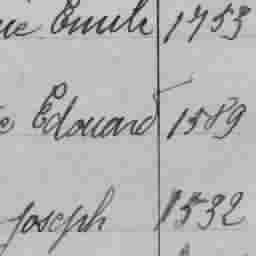 ue Emile 1753
e Edouard 1589
Joseph 1532